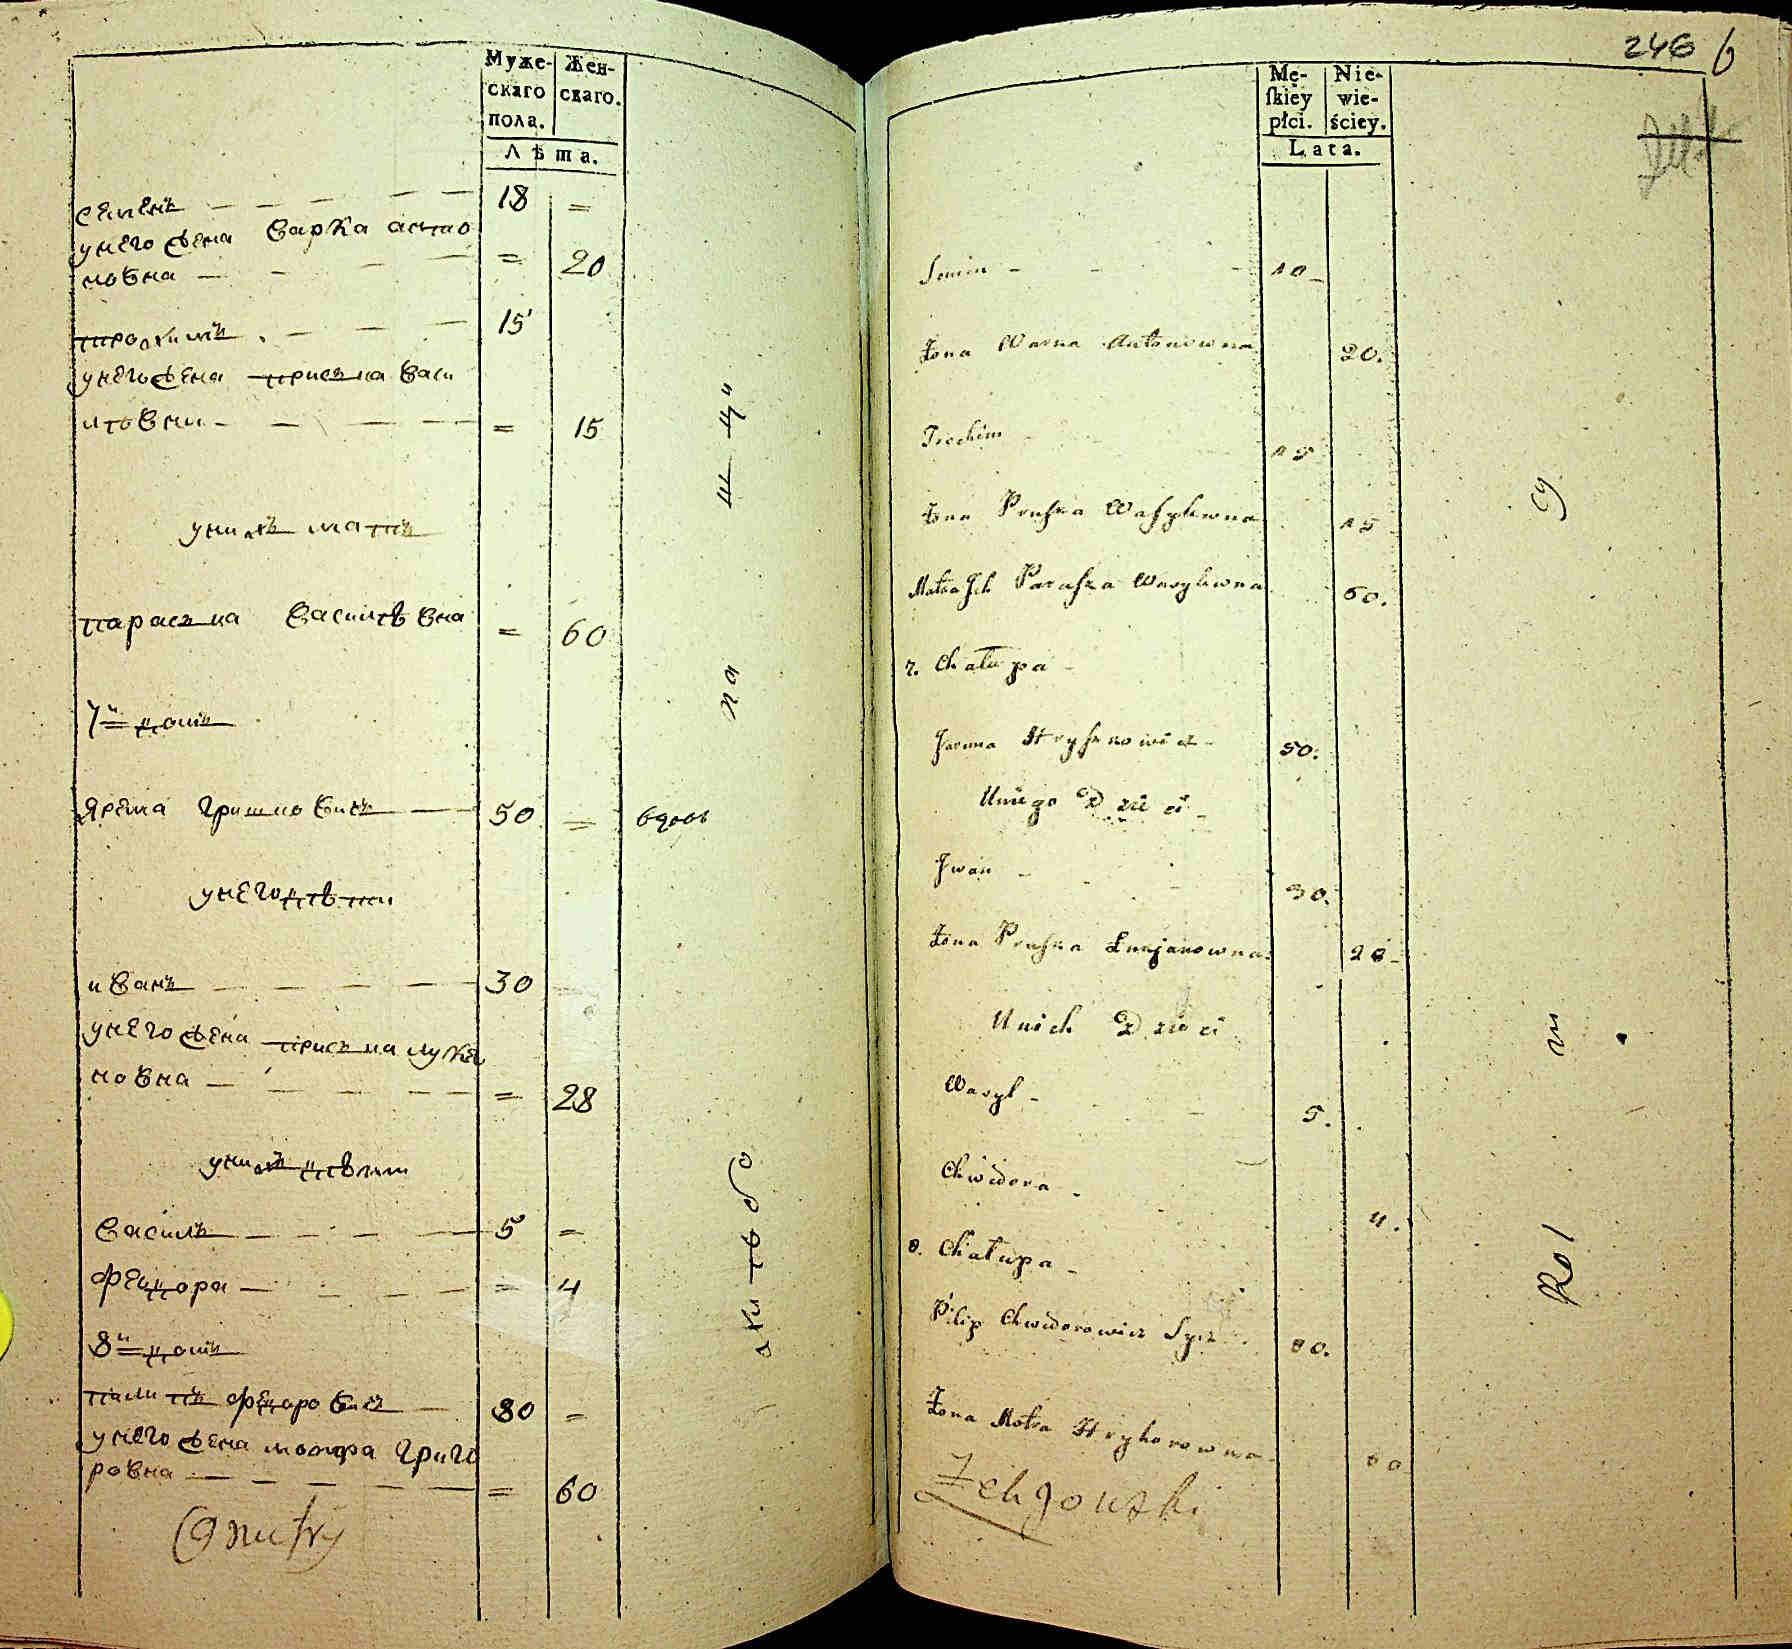 Муже- Жен-
скаго скаго.
пола.
Лѣта.
семенъ 18 =
унего жена варка анто
новна = 20
трохимъ 15
унего жена приська васи
ловна = 15
унихъ мать
параська василѣвна = 60
7й домъ
ярема гришковичъ 50 = вдовъ
унего дѣти
иванъ 30
унего жена приська лукя
новна = 28
унихъ дѣти
василь 5 =
федора = 4
8й домъ
пилипъ федоровичъ 80 =
унего жена мотра григо
ровна = 60
246 6
Mę- Nie-
skiey wie-
płci. ściey.
Lata.
Semen 18
Żona Warka Antonowna 20.
Trochim 15
Żona Pruska Wasylewna 15
Matka Jch Paraska Wasylewna 60.
7. Chałupa
Jarema Hryszkowicz 50.
Uniego Dzieci
Jwan 30.
Żona Pruska Łukjanowna 28
Unich Dzieci
Wasyl 5.
Chwedora 4.
8. Chałupa
Pilip Chwedorowicz Sycz 80.
Żona Motra Hryhorowna 60